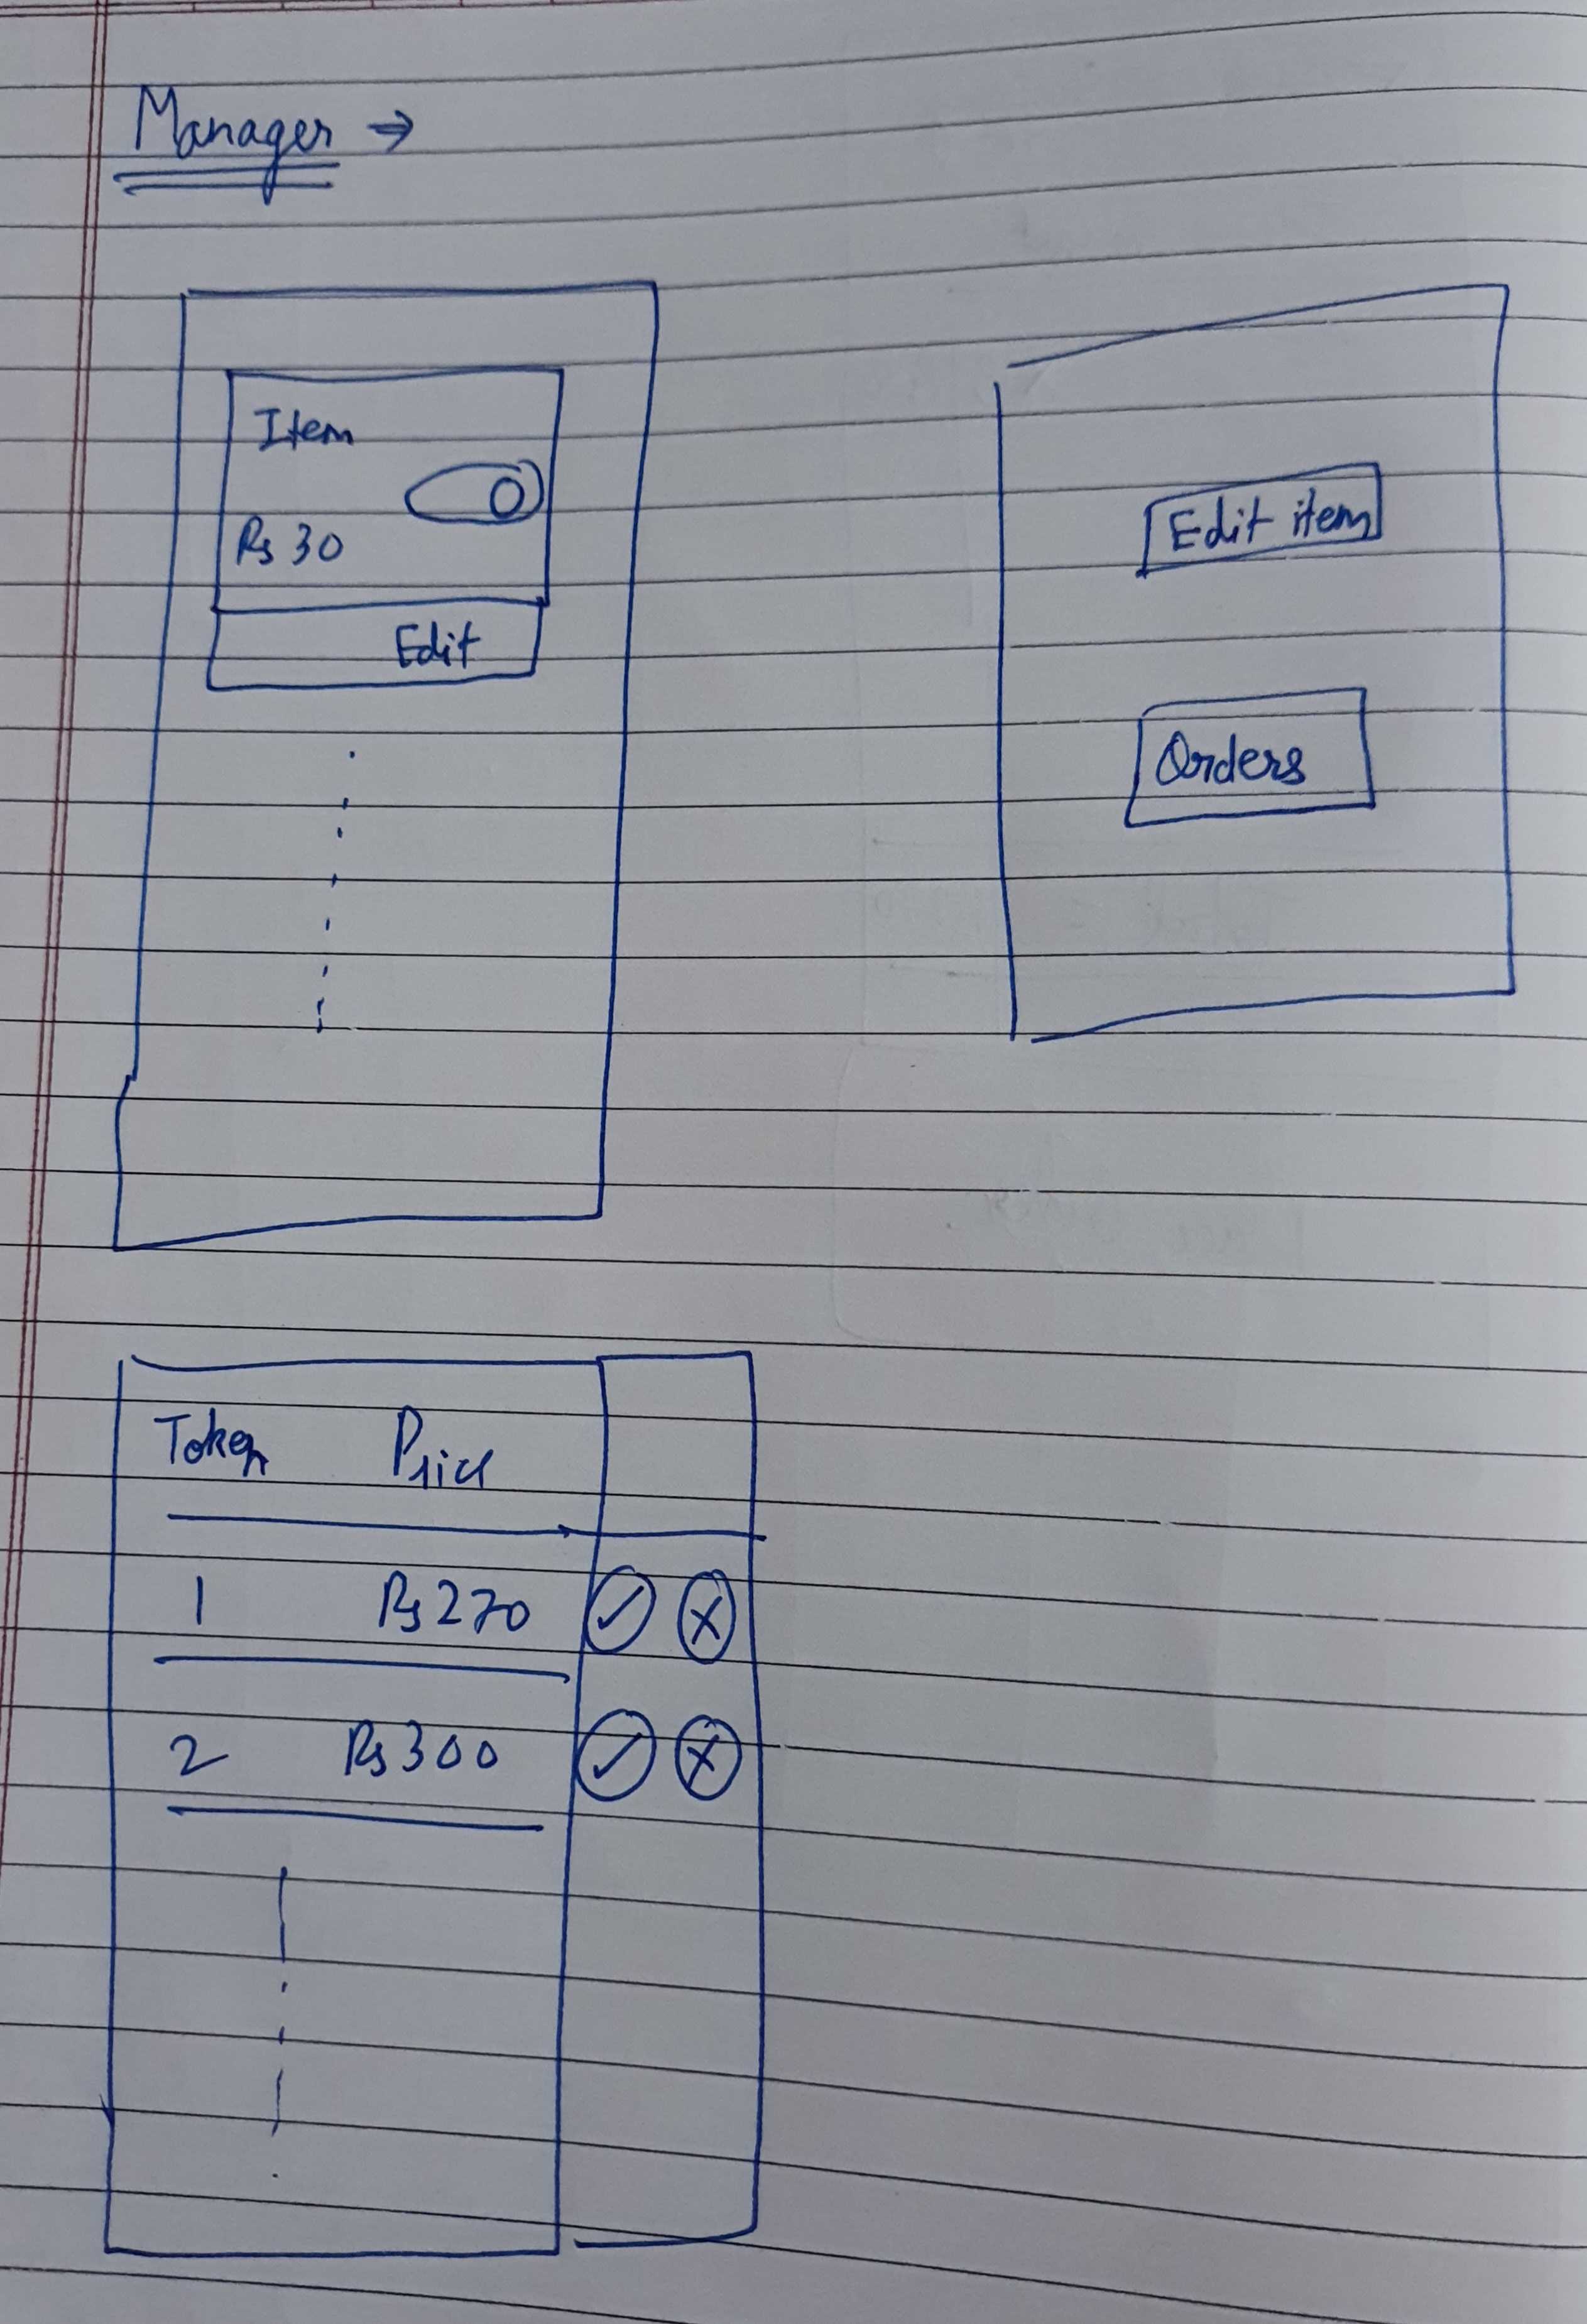 Manager →
Item
Rs 30
Edit
Edit item
Orders
Token Price
1 Rs 270
2 Rs 300